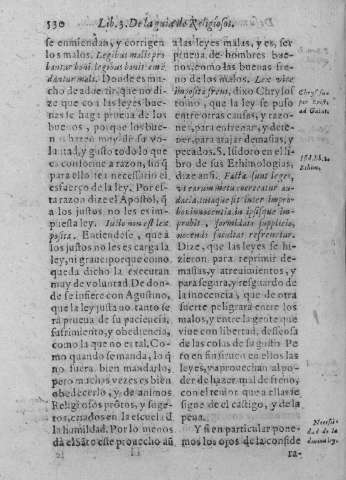 530 Lib. 3. De la guia de Religiosos.
se enmiendan, y corrigen
los malos. Legibus malis pro
bantur boni. legibus boni emē
dantur mali. Donde es mu-
cho de aduertir, que no di-
ze que con las leyes bue-
nas se haga prueua de los
buenos, porque los bue-
nos quieren bien a su vo-
luntad, y gusto todo lo q̃
es conforme a razon, sin q̃
para ello sea necessario el
esfuerço de la ley. Por es-
ta razon dize el Apostol, q̃
a los justos no les es im-
puesta ley. Iusto non est lex
posita. Entiendese, que a
los justos no les es carga la
ley, ni graue: porque como
queda dicho la executan
muy de voluntad. De don-
de se infiere con Agustino,
que la ley justa no tanto se-
rà prueua de su paciencia,
sufrimiento, y obediencia,
como la que no es tal. Co-
mo quando se manda, lo q̃
no fuera bien mandarlo,
pero muchas vezes es bien
obedecerlo, y de animos
Religiosos prōtos, y suge-
tos, criados en la escuela d̃
la humildad. Por lo menos
dà el Sāto este prouecho aũ
Ll
a las leyes malas, y es, ser
prueua de hombres bue-
nos, como las buenas fre-
no de los malos. Lex vice
imposita freni, dixo Chrysos
tomo, que la ley se puso
entre otras causas, y razo-
nes, para entrenar, y dete-
ner, para atajar demasias, y
pecados. S. Isidoro en el li-
bro de sus Ethimologias,
dize ansi. Factæ sunt leges,
vt earum metu coerceatur au-
dacia, tutaque sit inter impro-
bos innocentia, in ipsisque im-
probis, formidato supplicio,
nocendi facultas refrenetur.
Dize, que las leyes se hi-
zieron para reprimir de-
masias, y atreuimientos, y
para segura, y resguardo de
la inocencia, que de otra
suerte peligrara entre los
malos, y entre la gente que
viue con libertad, desseosa
de las colas de su gusto. Pe
ro en fin siruen en ellos las
leyes, y aprouechan al po-
der de hazer mal de freno,
con el temor que a ellas se
sigue de el castigo, y de la
pena.
Y si en particular pone-
mos los ojos de la conside
ra-
Chrysost.
ad Galat.
Ethim.
Necessi-
dad de la